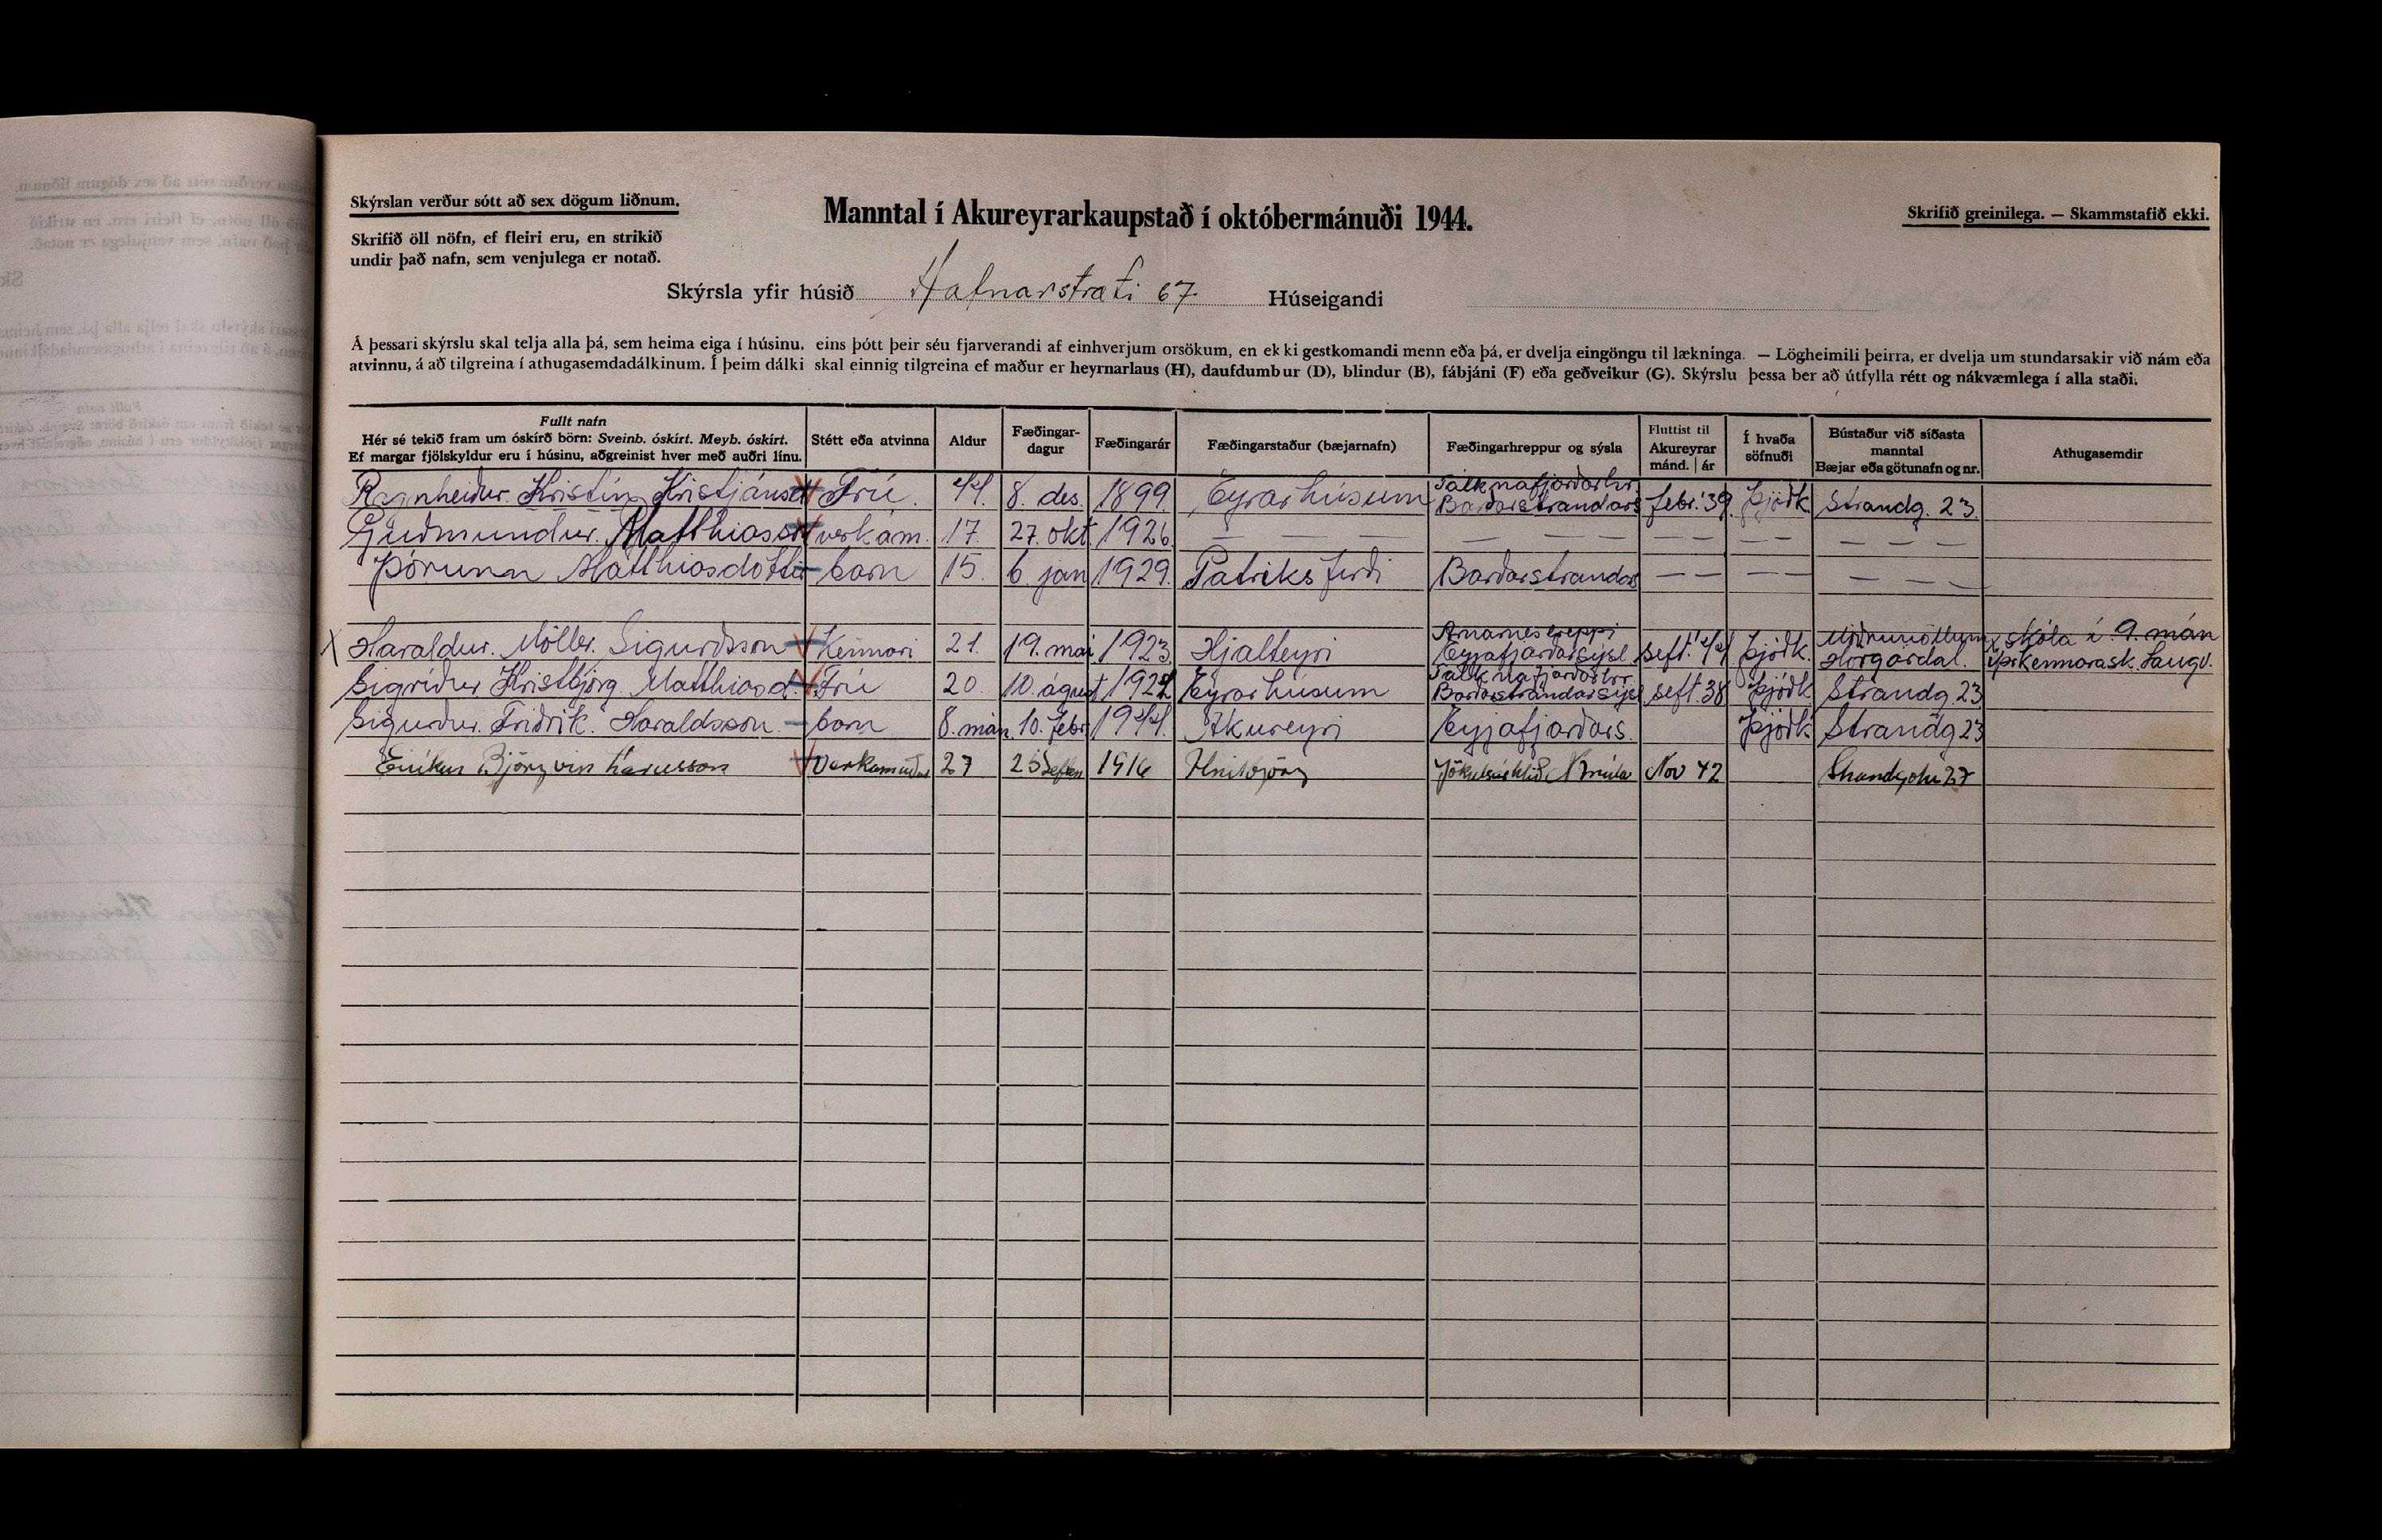 Skýrslan verður sótt að sex dögum liðnum.
Skrifið öll nöfn, ef fleiri eru, en strikið
undir það nafn, sem venjulega er notað.
Manntal í Akureyrarkaupstað í októbermánuði 1944.
Skrifið greinilega. — Skammstafið ekki.
Skýrsla yfir húsið Hafnarstræti 67 Húseigandi
Á þessari skýrslu skal telja alla þá, sem heima eiga í húsinu, eins þótt þeir séu fjarverandi af einhverjum orsökum, en ekki gestkomandi menn eða þá, er dvelja eingöngu til lækninga. — Lögheimili þeirra, er dvelja um stundarsakir við nám eða
atvinnu, á að tilgreina í athugasemdadálkinum. Í þeim dálki skal einnig tilgreina ef maður er heyrnarlaus (H), daufdumbur (D), blindur (B), fábjáni (F) eða geðveikur (G). Skýrslu þessa ber að útfylla rétt og nákvæmlega í alla staði.
Fullt nafn
Hér sé tekið fram um óskírð börn: Sveinb. óskírt. Meyb. óskírt.
Ef margar fjölskyldur eru í húsinu, aðgreinist hver með auðri línu.
Stétt eða atvinna
Aldur
Fæðingar-
dagur
Fæðingarár
Fæðingarstaður (bæjarnafn)
Fæðingarhreppur og sýsla
Fluttist til
Akureyrar
mánd. | ár
Í hvaða
söfnuði
Bústaður við síðasta
manntal
Bæjar eða götunafn og nr.
Athugasemdir
Ragnheiður. Kristín Kristjánsd Frú. 44. 8. des. 1899. Eyrarhúsum Tálknafjarðarhr. Barðastrandars febr. '39. Þjóðk. Strandg. 23.
Guðmundur. Matthiasson verkam. 17. 27. okt. 1926 — — — — — — — — — — — — —
Þórunn Matthiasdóttir barn 15. 6 jan 1929. Patriksfirði Barðastrandas — — — — —
X Haraldur. Möller. Sigurðsson Kennari 21. 19. mai 1923. Hjalteyri Arnarneshreppi Eyjafjarðarsýsl sept. '44 Þjóðk. Möðruvöllum Hörgárdal. x skóla í 9. mán íþrkennarask. Laugv.
Sigríður Kristbjörg Matthiasd. Frú 20. 10. águst 1924 Eyrarhúsum Tálknafjarðarhr. Barðastrandarsýsl sept. 38 Þjóðk Strandg. 23
Sigurður. Friðrik. Haraldsson. barn 8. mán. 10. febr 1944. Akureyri Eyjafjarðars. Þjóðk. Strandg 23
Eiríkur Björgvin Lárusson Verkamaður 27 25 Septem 1916 Hnitbjörg Jökulsárhlíð N múla Nov 42 Strandgötu 27